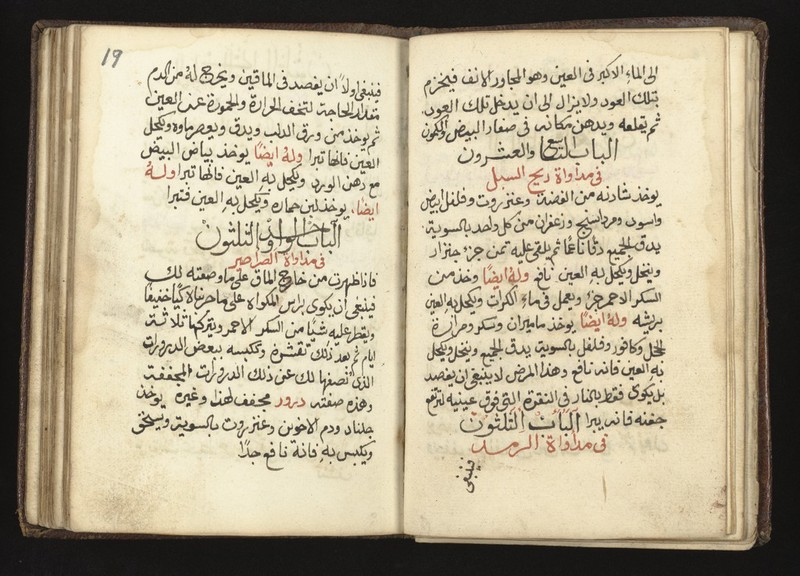 الى الماء الاكبر فى العين وهو المجاور الانف فيخزم
بتلك العود ولا يزال الى ان يدخل تلك العود
ثم يقلعه ويدهن مكانه فى صفار البيض
الباب التاسع والعشرون
فى مداواة ريح السبل
يوخذ شادنه من الفضة وعنزروت وفلفل ابيض
واسود ومرداسنج وزعفران من كل واحد بالسوية
يدق الجميع دقا ناعما ثم يلقى عليه ثمن جزء جنزار
وينخل ويكحل به العين نافع وله ايضا وخذ من
السكر الاحمر جزء ويعمل فى ماء الكرات ويكحل به العين
بريشه وله ايضا يوخذ ماميران وسكر ومرارة
الحجل وكافور وفلفل بالسوية يدق الجميع وينخل ويكحل
به العين فانه نافع وهذا المرض لا ينبغى ان يفصد
بل يكوى فقط بالنار فى النقرة التى فوق عينيه
جفنه فانه يبرا الباب الثلثون
فى مداواة الرمد
فينبغى
19
فينبغى اولا ان يفصد فى الماقين ويخرج له من الدم
مقدار الحاجة لتخف الحرارة والحمورة عن العين
ثم يوخذ من ورق الدلب ويدق ويعصر ماوه ويكحل
العين فانها تبرا وله ايضا يوخذ بياض البيض
مع دهن الورد ويكحل به العين فانها تبرا وله
ايضا يوخذ لبن حماره ويكحل به العين فتبرا
الباب الواحد والثلثون
فى مداواة الصراصير
فاذا ظهرت من خارج الماق على ما وصفته لك
فينبغى ان يكوى براس المكواه على ما حرناه كيا خفيفا
ويقطر عليه شيا من السكر الاحمر ويتركها ثلاثة
ايام ثم بعد ذلك تقشره وتكبسه ببعض الدرورات
الذى نصفها لك عن ذلك الدرورات المجففة
وهذه صفته درور مجفف لهذا وغيره يوخذ
جلنار ودم الاخوين وعنزروت بالسوية ويسحق
ويكبس به فانه نافع جدا